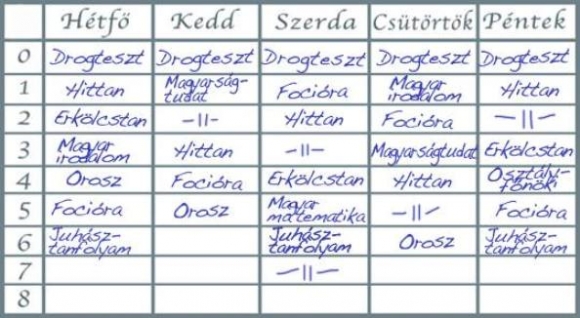 Hétfő Kedd Szerda Csütörtök Péntek
0 Drogteszt Drogteszt Drogteszt Drogteszt Drogteszt
1 Hittan Magyarság-tudat Focióra Magyar irodalom Hittan
2 Erkölcstan -||- Hittan Focióra -||-
3 Magyar irodalom Hittan -||- Magyarságtudat Erkölcstan
4 Orosz Focióra Erkölcstan Hittan Osztály-főnöki
5 Focióra Orosz Magyar matematika -||- Focióra
6 Juhász-tanfolyam Juhász-tanfolyam Orosz Juhász-tanfolyam
7 -||-
8